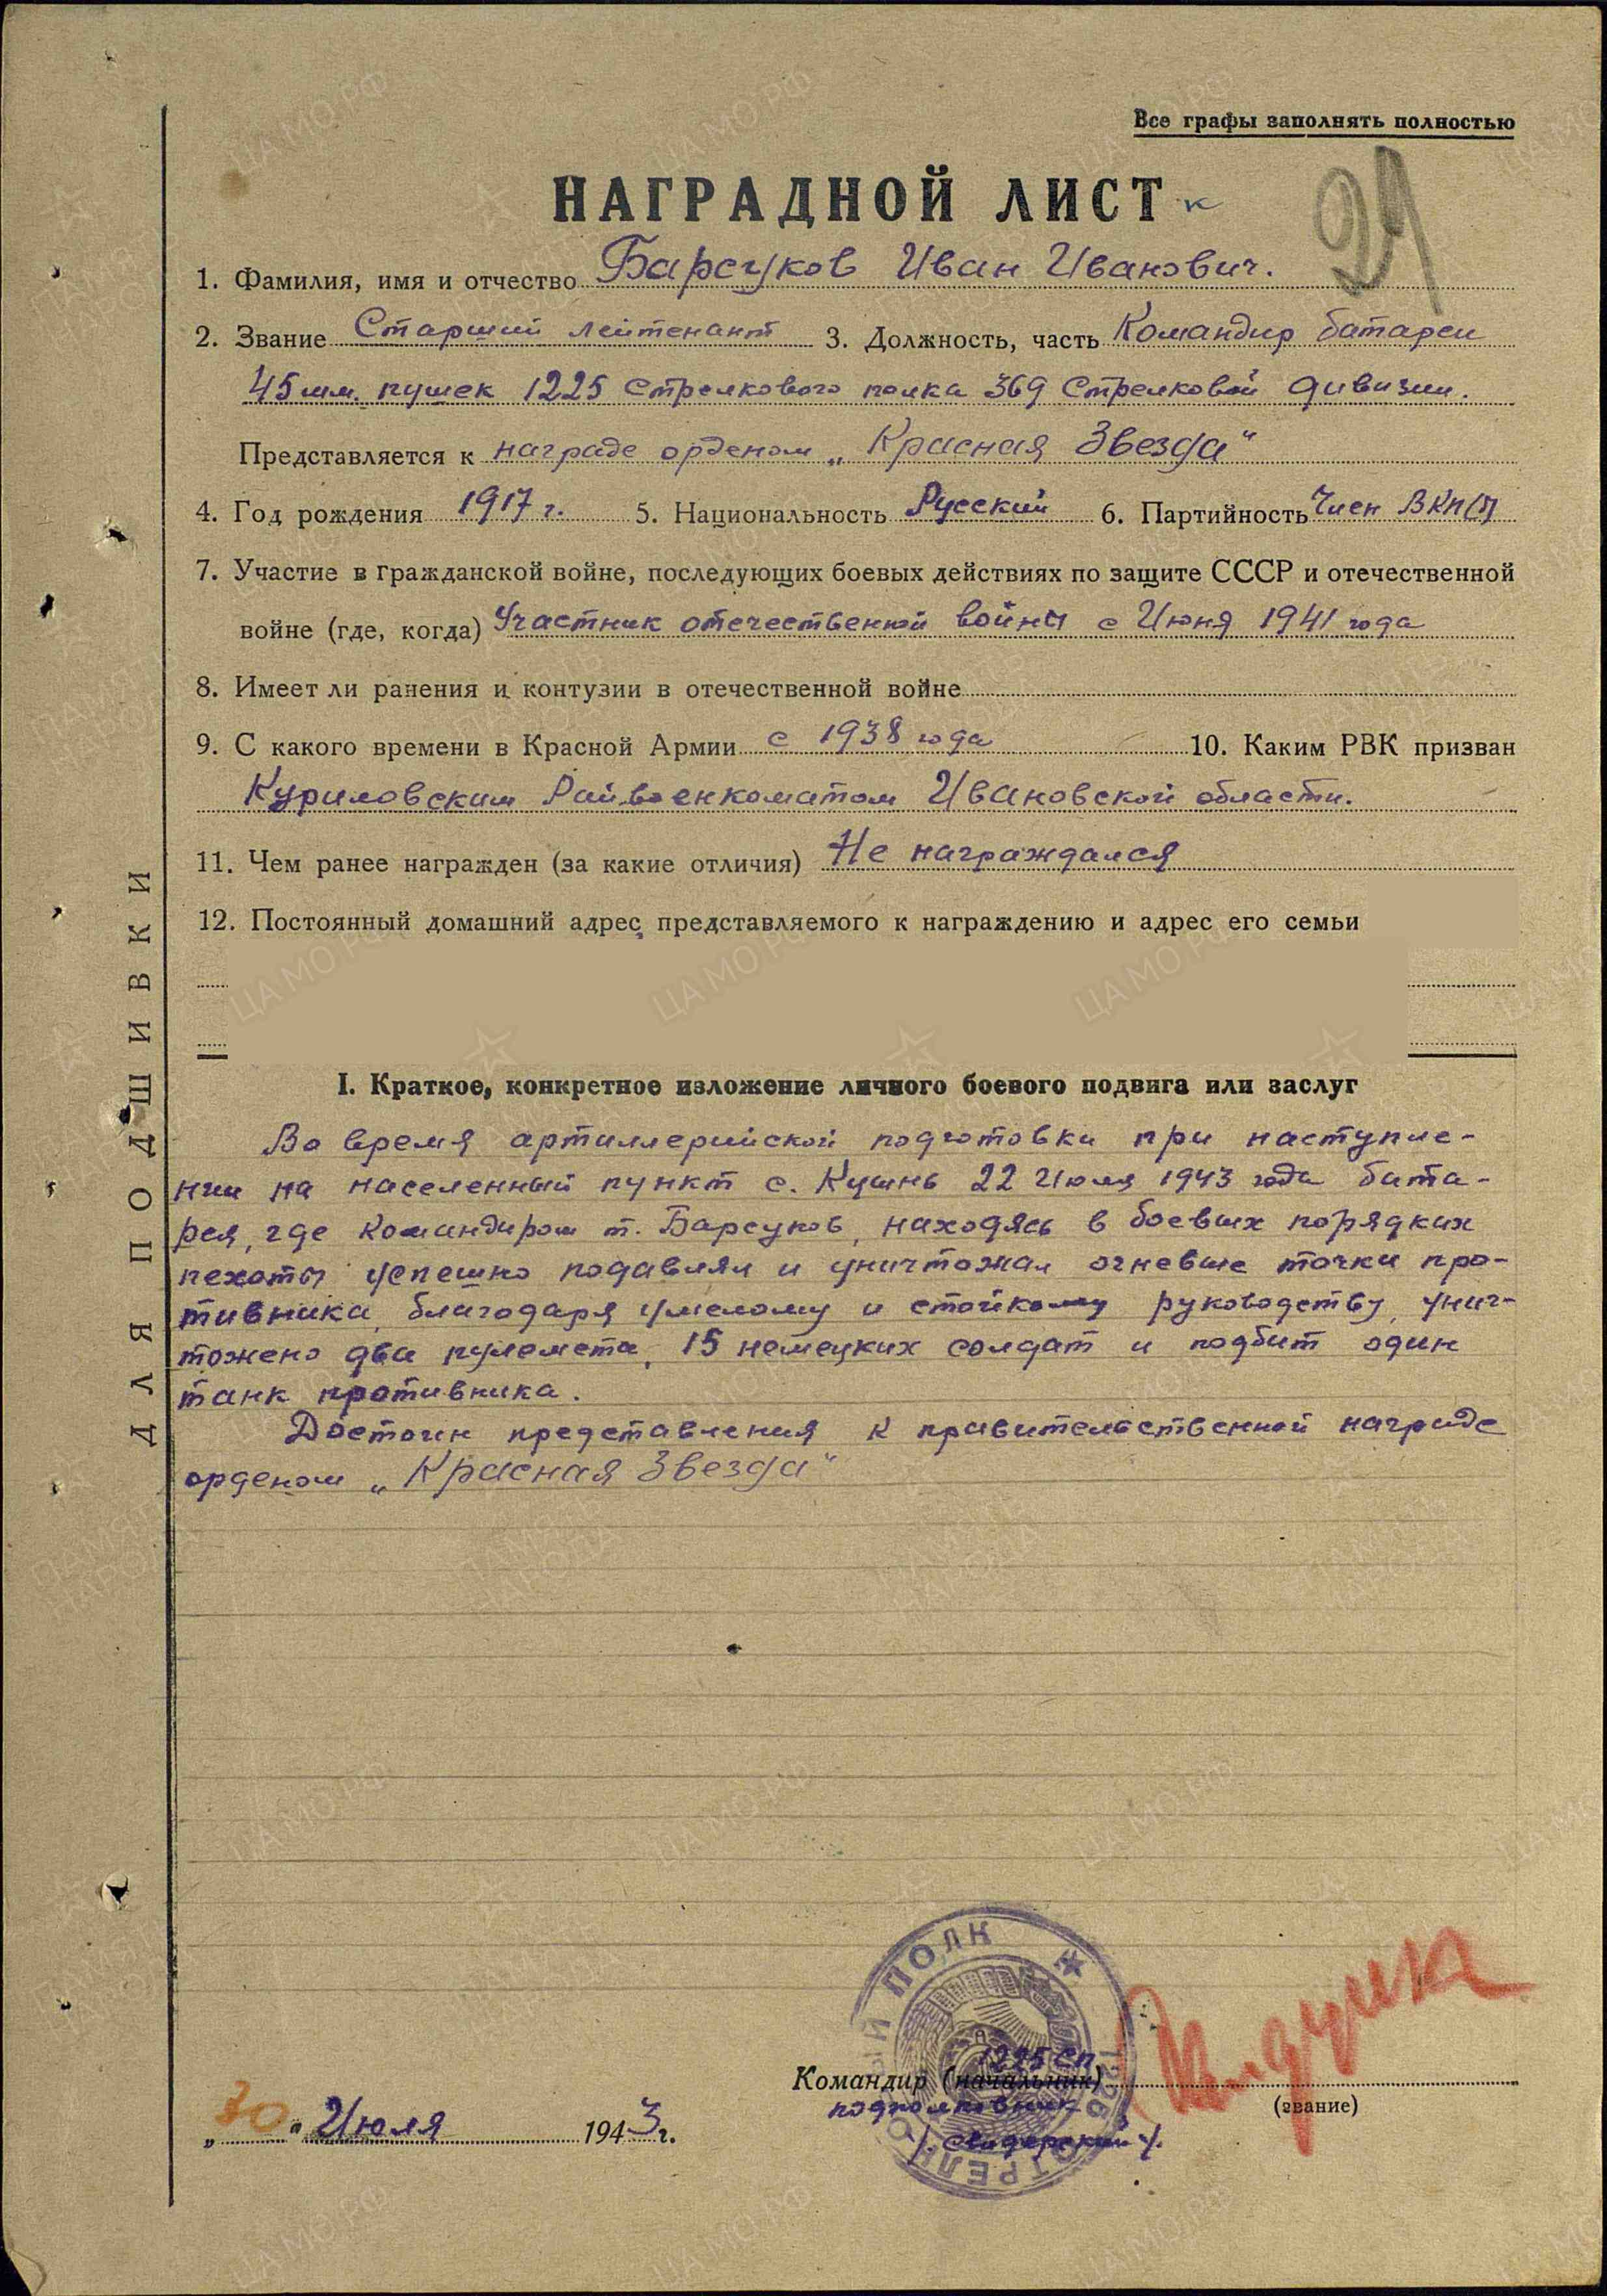 Все графы заполнять полностью
НАГРАДНОЙ ЛИСТ к
29
1. Фамилия, имя и отчество Барсуков Иван Иванович.
2. Звание Старший лейтенант 3. Должность, часть Командир батареи
45 мм. пушек 1225 Стрелкового полка 369 Стрелковой дивизии.
Представляется к награде орденом „Красная Звезда“
4. Год рождения 1917 г. 5. Национальность Русский 6. Партийность Член ВКП(б)
7. Участие в гражданской войне, последующих боевых действиях по защите СССР и отечественной
войне (где, когда) Участник отечественной войны с Июня 1941 года
8. Имеет ли ранения и контузии в отечественной войне
9. С какого времени в Красной Армии с 1938 года 10. Каким РВК призван
Куриловским Райвоенкоматом Ивановской области.
11. Чем ранее награжден (за какие отличия) Не награждался
12. Постоянный домашний адрес представляемого к награждению и адрес его семьи
I. Краткое, конкретное изложение личного боевого подвига или заслуг
Во время артиллерийской подготовки при наступле-
нии на населенный пункт с. Кушнь 22 Июля 1943 года бата-
рея, где командиром т. Барсуков, находясь в боевых порядках
пехоты успешно подавлял и уничтожал огневые точки про-
тивника, благодаря умелому и стойкому руководству, унич-
тожено два пулемета, 15 немецких солдат и подбит один
танк противника.
Достоин представления к правительственной награде
орденом „Красная Звезда“
ДЛЯ ПОДШИВКИ
1225 СП
Командир (начальник)
подполковник
(звание)
„30“ Июля 1943 г.
ПОЛК
1225
ЦА МО РФ
ПАМЯТЬ НАРОДА